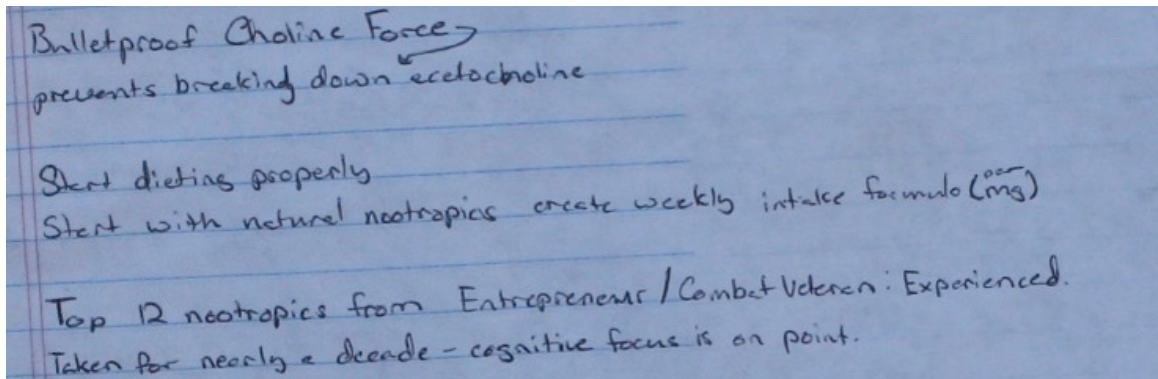 Bulletproof Choline Force
prevents breaking down acetocholine
Start dieting properly
Start with natural nootropics create weekly intake formula (mg)
Top 12 nootropics from Entrepreneur / Combat Veteran : Experienced.
Taken for nearly a decade - cognitive focus is on point.